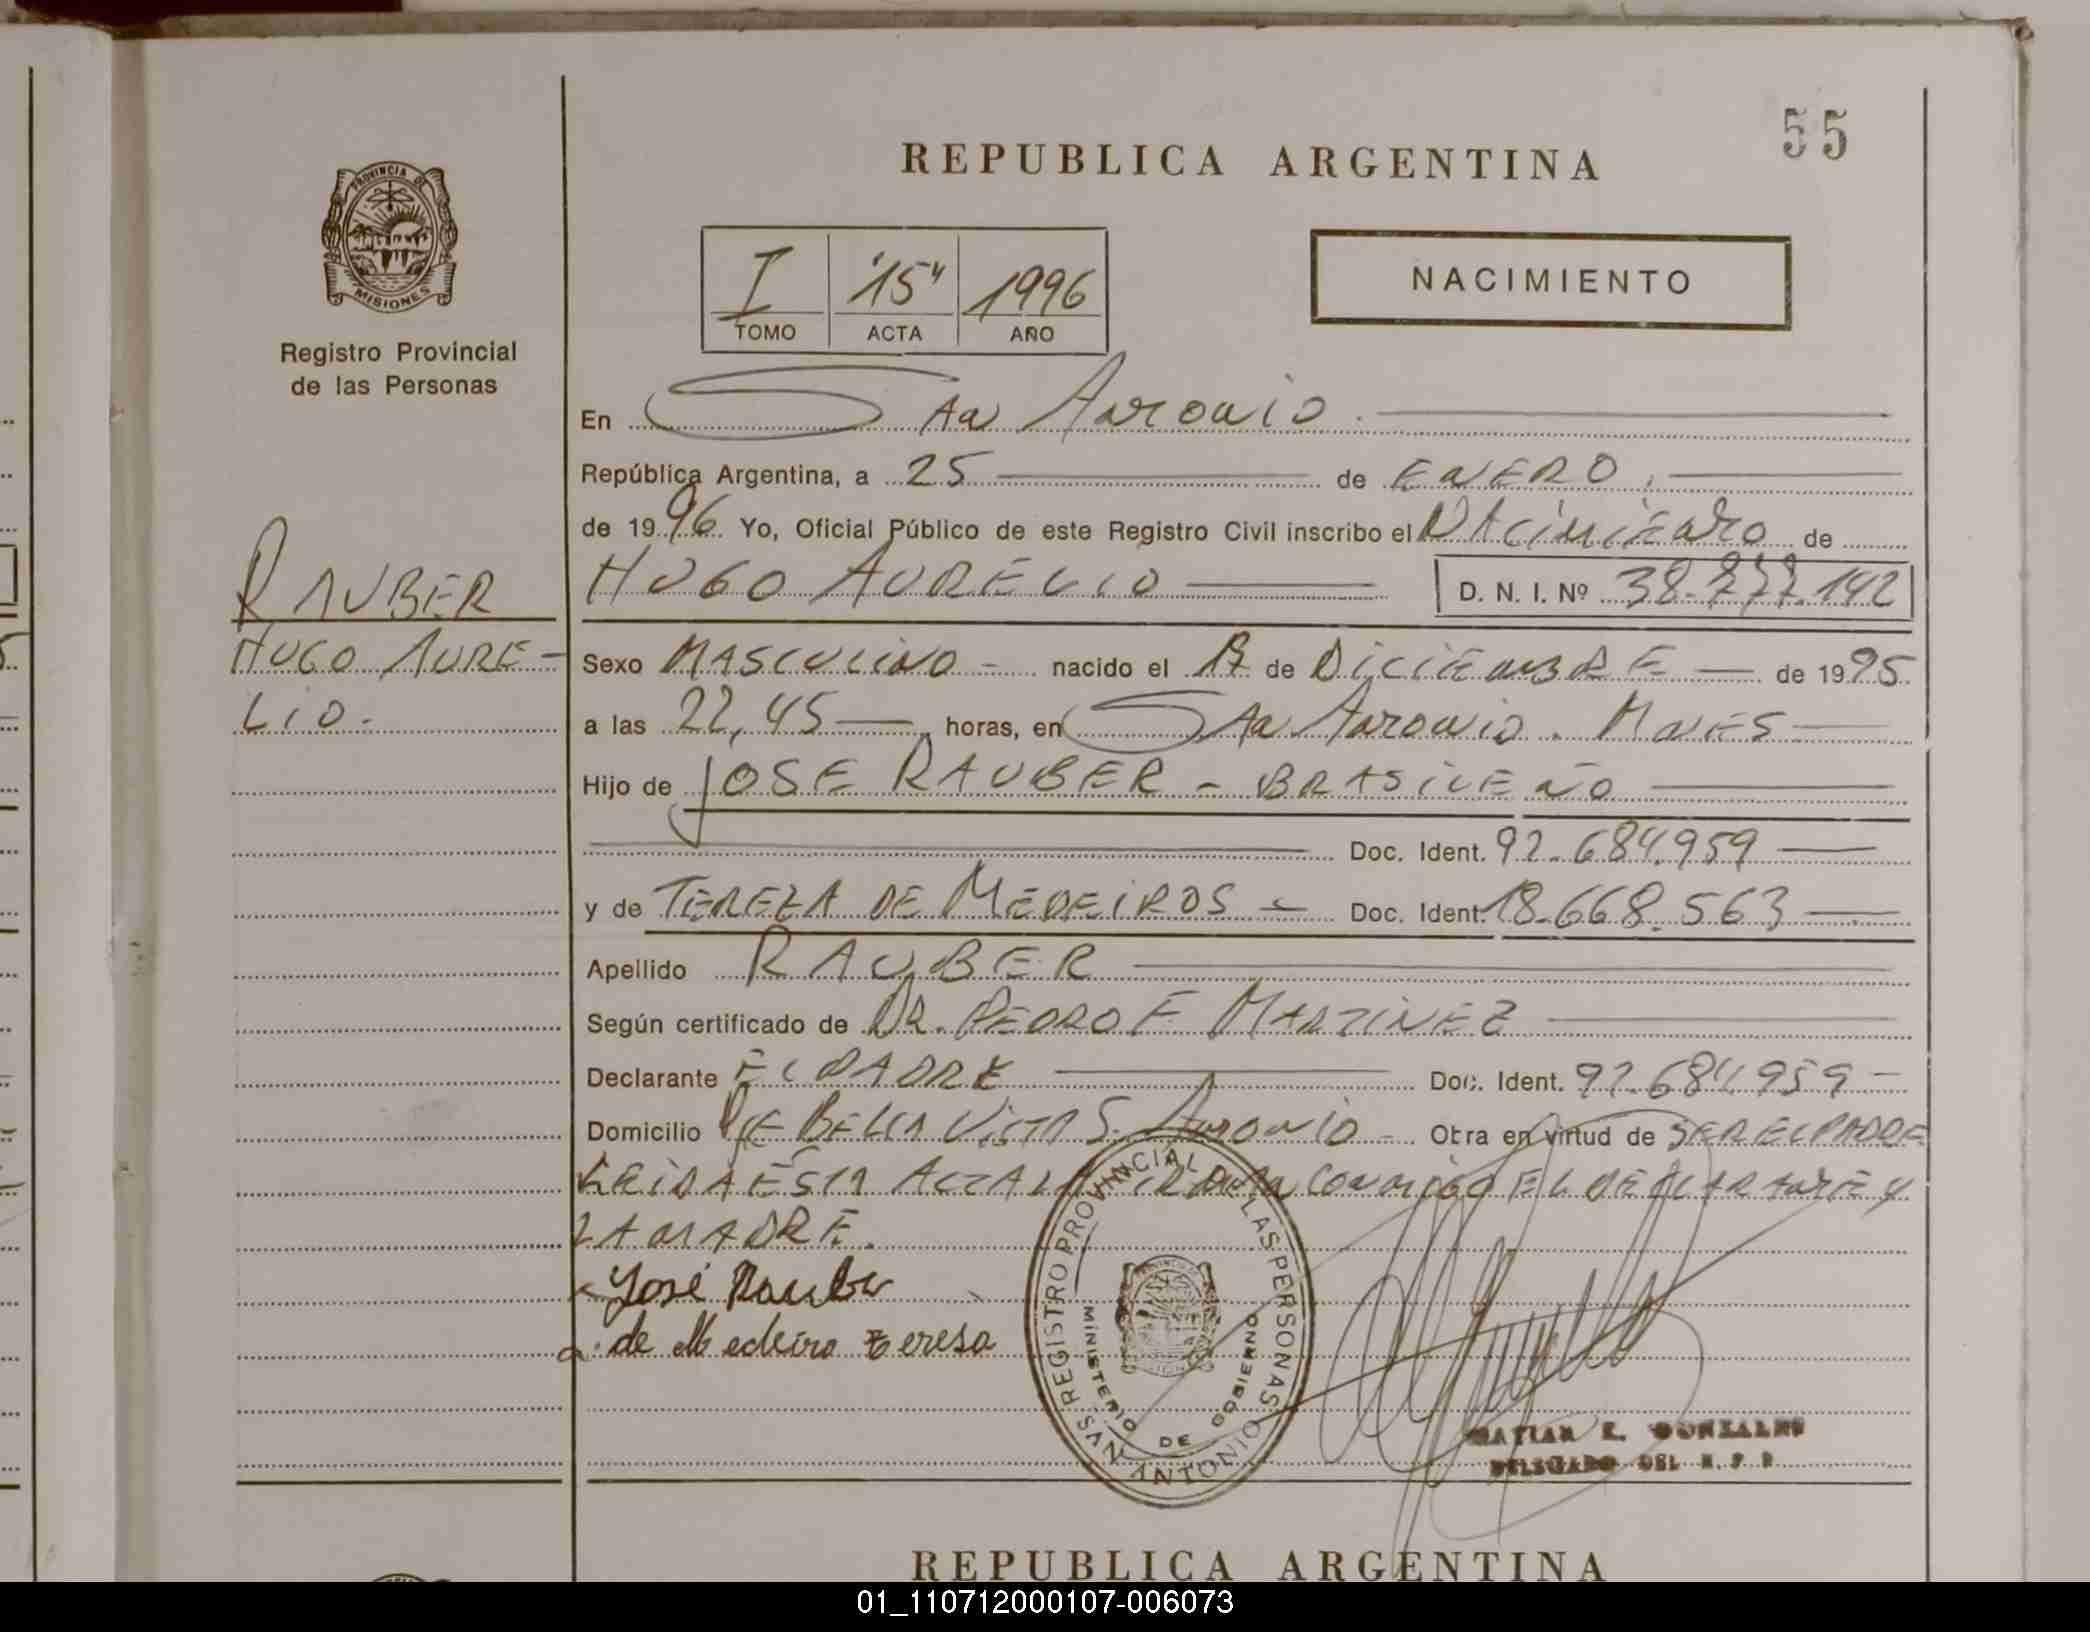 55
REPUBLICA ARGENTINA
PROVINCIA DE
MISIONES
Registro Provincial
de las Personas
I "15" 1996
TOMO ACTA AÑO
NACIMIENTO
En San Antonio.
República Argentina, a 25 de ENERO.
de 1996 Yo, Oficial Público de este Registro Civil inscribo el NAcimiento de
HUGO AURELIO D. N. I. Nº 38.777.142
RAUBER
HUGO AURE-
LIO.-
Sexo MASCULINO - nacido el 17 de DICIEMBRE de 1995
a las 22,45 horas, en San Antonio. Mnes
Hijo de JOSE RAUBER - BRASILEÑO
Doc. Ident. 92.684.959
y de TEREZA DE MEDEIROS - Doc. Ident. 18.668.563
Apellido RAUBER
Según certificado de DR. PEDRO F MARTINEZ
Declarante EL PADRE Doc. Ident. 92.684.959 -
Domicilio BELLA VISTA S. Antonio - Obra en virtud de SER EL PADRE
LEIDA ESTA ACTA LA FIRMAN CONMIGO EL DECLARANTE Y
LA MADRE.
José Rauber
de Medeiro Teresa
REGISTRO PROVINCIAL LAS PERSONAS
MINISTERIO DE GOBIERNO
SAN ANTONIO
E. GONZALEZ
DELEGADO DEL R. P. P
REPUBLICA ARGENTINA
01_110712000107-006073